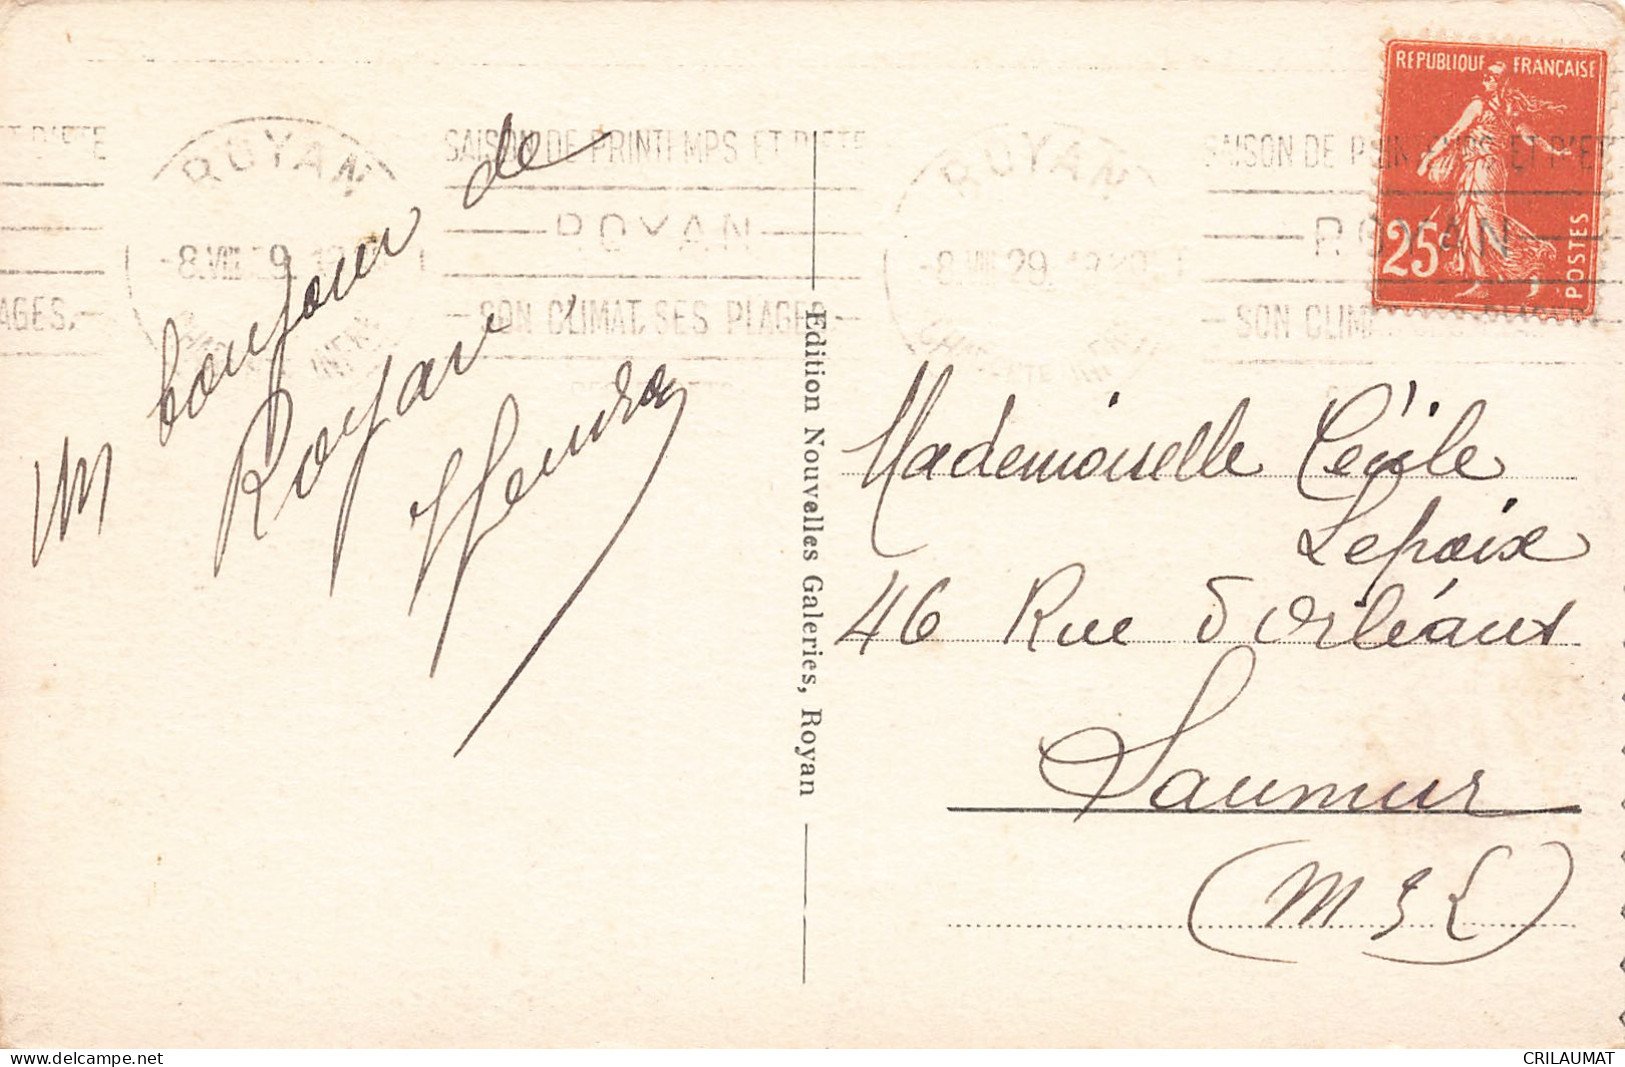 Un bonjour de
Royan
SAISON DE PRINTEMPS ET D'ETE
ROYAN
SON CLIMAT, SES PLAGES
ROYAN
8.VIII 29
CHARENTE INFRE
Edition Nouvelles Galeries, Royan
ROYAN
8.VIII 29
SAISON DE PRINTEMPS ET D'ETE
ROYAN
SON CLIMAT
ET D'ETE
AGES.
REPUBLIQUE FRANÇAISE
25c
POSTES
Mademoiselle Cécile
Lepoix
46 Rue d'Orléans
Saumur
(M & L)
www.delcampe.net
CRILAUMAT